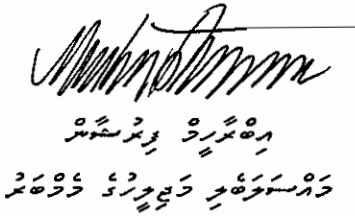 އިބްރާހީމް ފިރުޝާން
މައްސަލަބެލި މަޖިލީހުގެ މެމްބަރު